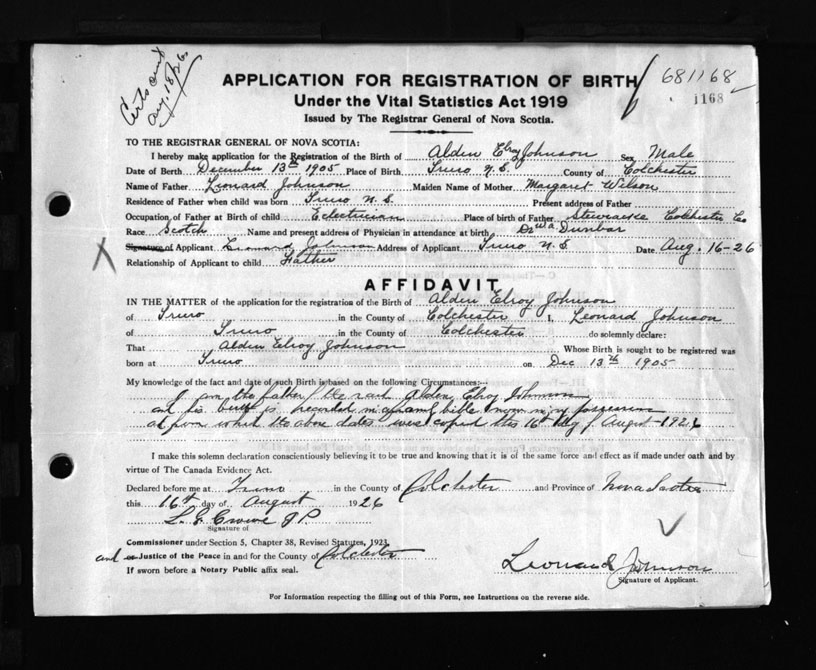 Certs cert
Aug. 18/26
681168
1168
APPLICATION FOR REGISTRATION OF BIRTH
Under the Vital Statistics Act 1919
Issued by The Registrar General of Nova Scotia.
TO THE REGISTRAR GENERAL OF NOVA SCOTIA:
I hereby make application for the Registration of the Birth of Alden Elroy Johnson Sex Male
Date of Birth December 13th 1905 Place of Birth Truro N.S. County of Colchester
Name of Father Leonard Johnson Maiden Name of Mother Margaret Wilson
Residence of Father when child was born Truro N.S. Present address of Father
Occupation of Father at Birth of child Eclectrician Place of birth of Father Stewiacke Colchester Co
Race Scotch Name and present address of Physician in attendance at birth Dr Dunbar
Signature of Applicant Leonard Johnson Address of Applicant Truro N.S Date Aug. 16-26
Relationship of Applicant to child Father
AFFIDAVIT
IN THE MATTER of the application for the registration of the Birth of Alden Elroy Johnson
of Truro in the County of Colchester I, Leonard Johnson
of Truro in the County of Colchester do solemnly declare:
That Alden Elroy Johnson Whose Birth is sought to be registered was
born at Truro on Dec 13th 1905
My knowledge of the fact and date of such Birth is based on the following Circumstances:
I am the father of the said Alden Elroy Johnson
and his birth is recorded in a family bible now in my possession
and from which the above dates were copied this 16th day of August-1926
I make this solemn declaration conscientiously believing it to be true and knowing that it is of the same force and effect as if made under oath and by
virtue of The Canada Evidence Act.
Declared before me at Truro in the County of Colchester and Province of Nova Scotia
this 16th day of August 1926
L. E. Crowe J P.
Signature of
Commissioner under Section 5, Chapter 38, Revised Statutes, 1923,
and or Justice of the Peace in and for the County of Colchester
If sworn before a Notary Public affix seal.
Leonard Johnson
Signature of Applicant.
For Information respecting the filling out of this Form, see Instructions on the reverse side.